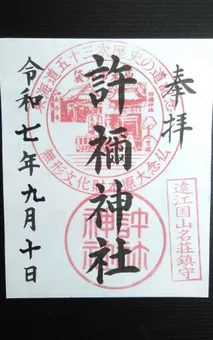 奉拝
東海道五十三次歴史の道記念
無形文化財 原大念仏
許禰神社
許禰神社
遠江国山名荘鎮守
令和七年九月十日